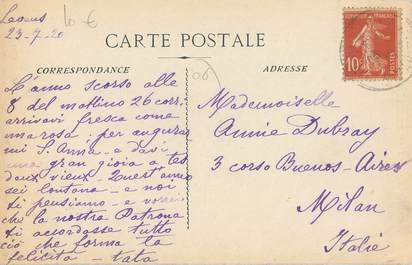 Levens
23-7-20
10 €
CARTE POSTALE
CORRESPONDANCE
ADRESSE
L'anno scorso alle
8 del mattino 26 corr:
arrivavi fresca come
una rosa: per augurar
mi S. Anna - e davi
una gran gioia a tes
deux vieux - Quest'anno
sei lontana - e noi
ti pensiamo - e
che la nostra Patrona
ti accordasse tutto
ciò che forma la
felicità - tata
Mademoiselle
Annie Dubray
3 corso Buenos-Aires
Milan
Italie
10c
POSTES